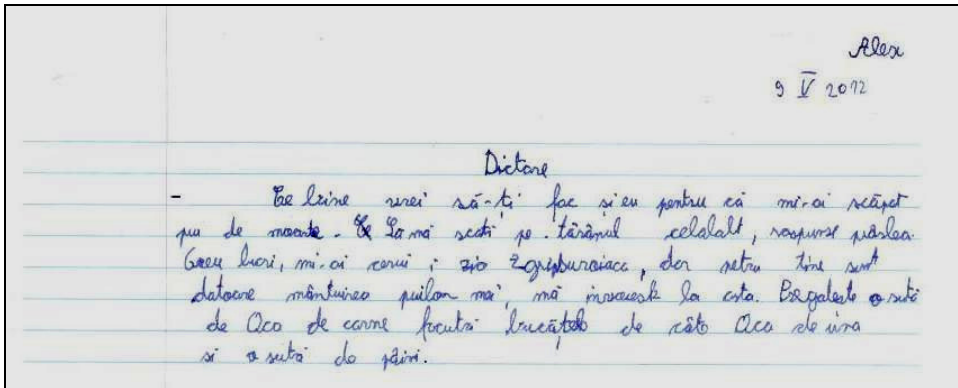 Alex
9 V 2012
Dictare
- Ce bine vrei să-ți fac și eu pentru că mi-ai scăpat
pu de moarte. Sa mă scati pe tărânul celalalt, raspunse pâslea.
Greu lucri, mi-ai cerui ; zio Zgripburoiaca, dar petru tine sunt
datoare mântuirea puilon mai, mă învoiesk la asta. Pregateste o sută
de Oca de carne facută bucățele de câto Oca de una
si o sută do pâini.